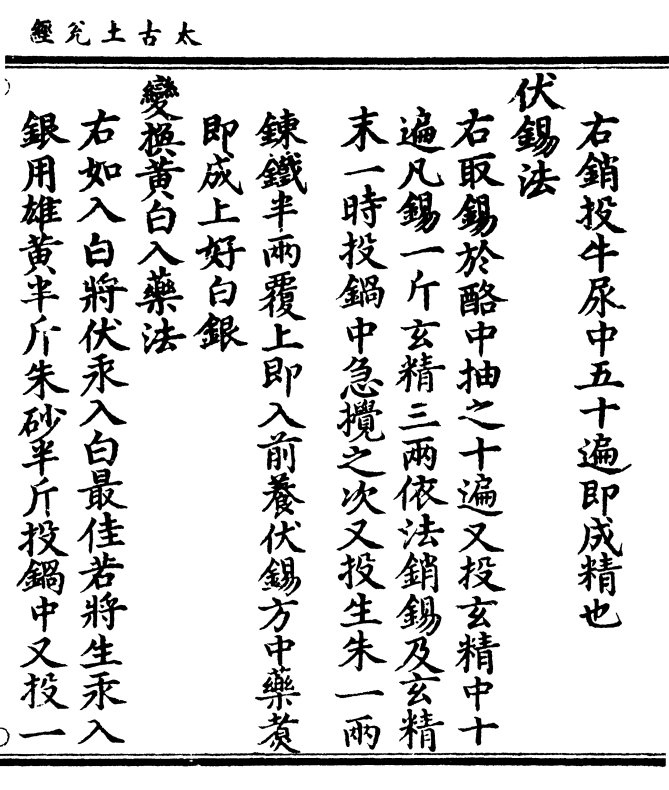 太古土兊經
右銷投牛尿中五十遍即成精也
伏錫法
右取錫於酪中抽之十遍又投玄精中十
遍凡錫一斤玄精三兩依法銷錫及玄精
末一時投鍋中急攪之次又投生朱一兩
鍊鐵半兩覆上即入前養伏錫方中藥煑
即成上好白銀
變換黃白入藥法
右如入白將伏汞入白最佳若將生汞入
銀用雄黃半斤朱砂半斤投鍋中又投一